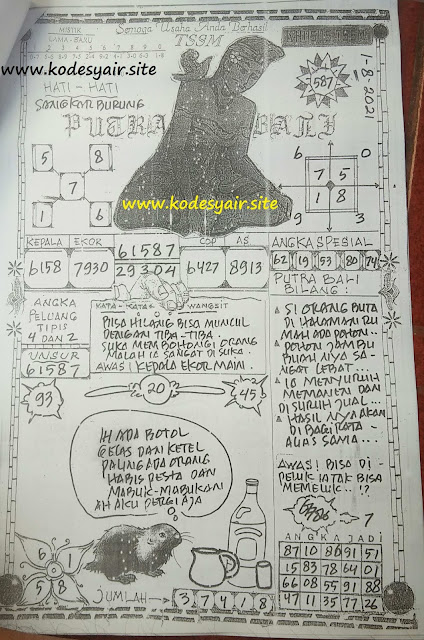 MISTIK
LAMA - BARU
Semoga Usaha Anda Berhasil
TSSM
1-8-2021
587
www.kodesyair.site
HATI - HATI
SANGKAR BURUNG
PUTRA BALI
5 8
7
1 6
6 0
7 5
1 8
9 3
www.kodesyair.site
KEPALA EKOR
6158 7930
61587
29304
COP AS
6427 8913
ANGKA SPESIAL
62 19 53 80 74
ANGKA
PELUANG
TIPIS
4 DAN 2
UNSUR
6 1 5 8 7
KATA - KATA WANGSIT
BISA HILANG BISA MUNCUL
DENGAN TIBA-TIBA.
SUKA MEMBOHONGI ORANG
MALAH IA SANGAT DI SUKA.
AWAS! KEPALA EKOR MAIN.
93
20
45
PUTRA BALI
BILANG:
SI ORANG BUTA
DI HALAMAN RU
MAH ADA POHON.
POHON JAMBU
BUAH NYA SA-
NGAT LEBAT...
IA MENYURUH
MEMANEN DAN
DI SURUH JUAL...
HASIL NYA AKAN
DI BAGI RATA
ALIAS SAMA...
AWAS! BISA DI -
PELUK TATAK BISA
MEMELUK..!?
IH ADA BOTOL
GELAS DAN KETEL
PALING ADA ORANG
HABIS PESTA DAN
MABUK-MABUKAN
AH AKU PERGI AJA
7
ANGKA JADI
87 10 80 91 51
15 83 78 64 01
66 08 55 91 88
47 11 35 77 26
6 1
5 8
JUMLAH → 3 7 4 1 8